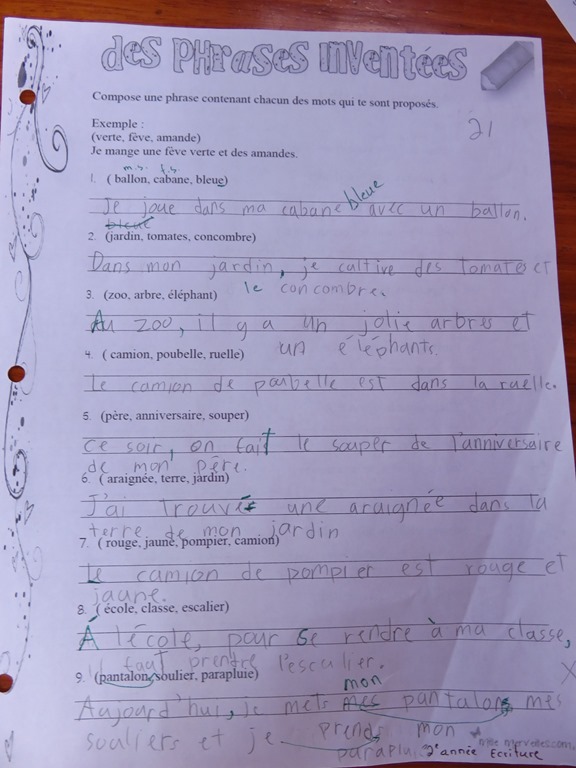 Des phrases inventées
Compose une phrase contenant chacun des mots qui te sont proposés.
Exemple :
(verte, fève, amande)
Je mange une fève verte et des amandes.
21
m.s. f.s
1. ( ballon, cabane, bleue)
bleue
Je joue dans ma cabane avec un ballon.
bleue
2. (jardin, tomates, concombre)
Dans mon jardin, je cultive des tomates et
le concombre.
3. (zoo, arbre, éléphant)
Au zoo, il y a un jolie arbres et
un éléphants.
4. ( camion, poubelle, ruelle)
Le camion de poubelle est dans la ruelle.
5. (père, anniversaire, souper)
Ce soir, on fait le souper de l'anniversaire
de mon père.
6. ( araignée, terre, jardin)
J'ai trouvé une araignée dans la
terre de mon jardin
7. ( rouge, jaune, pompier, camion)
Le camion de pompier est rouge et
jaune.
8. ( école, classe, escalier)
À l'école, pour se rendre à ma classe,
il faut prendre l'esculier.
9. (pantalon, soulier, parapluie)
mon
Aujourd'hui, je mets mes pantalons mes
souliers et je prends mon
paraplui
2e année Ecriture